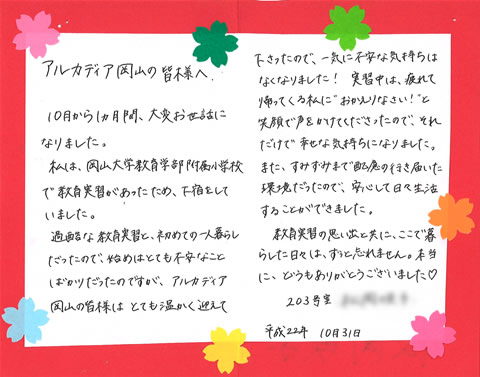 アルカディア岡山の皆様へ.
10月から1ヵ月間、大変お世話に
なりました。
私は、岡山大学教育学部附属小学校
で教育実習があったため、下宿をして
いました。
過酷な教育実習と、初めての一人暮らし
だったので、始めはとても不安なこと
ばかりだったのですが、アルカディア
岡山の皆様はとても温かく迎えて
下さったので、一気に不安な気持ちは
なくなりました! 実習中は、疲れて
帰ってくる私に"おかえりなさい!"と
笑顔で声をかけてくださったので、それ
だけで幸せな気持ちになりました。
また、すみずみまで配慮の行き届いた
環境だったので、安心して日々生活
することができました。
教育実習の思い出と共に、ここで暮
らした日々は、ずっと忘れません。本当
に、どうもありがとうございました♡
203号室
平成22年 10月31日